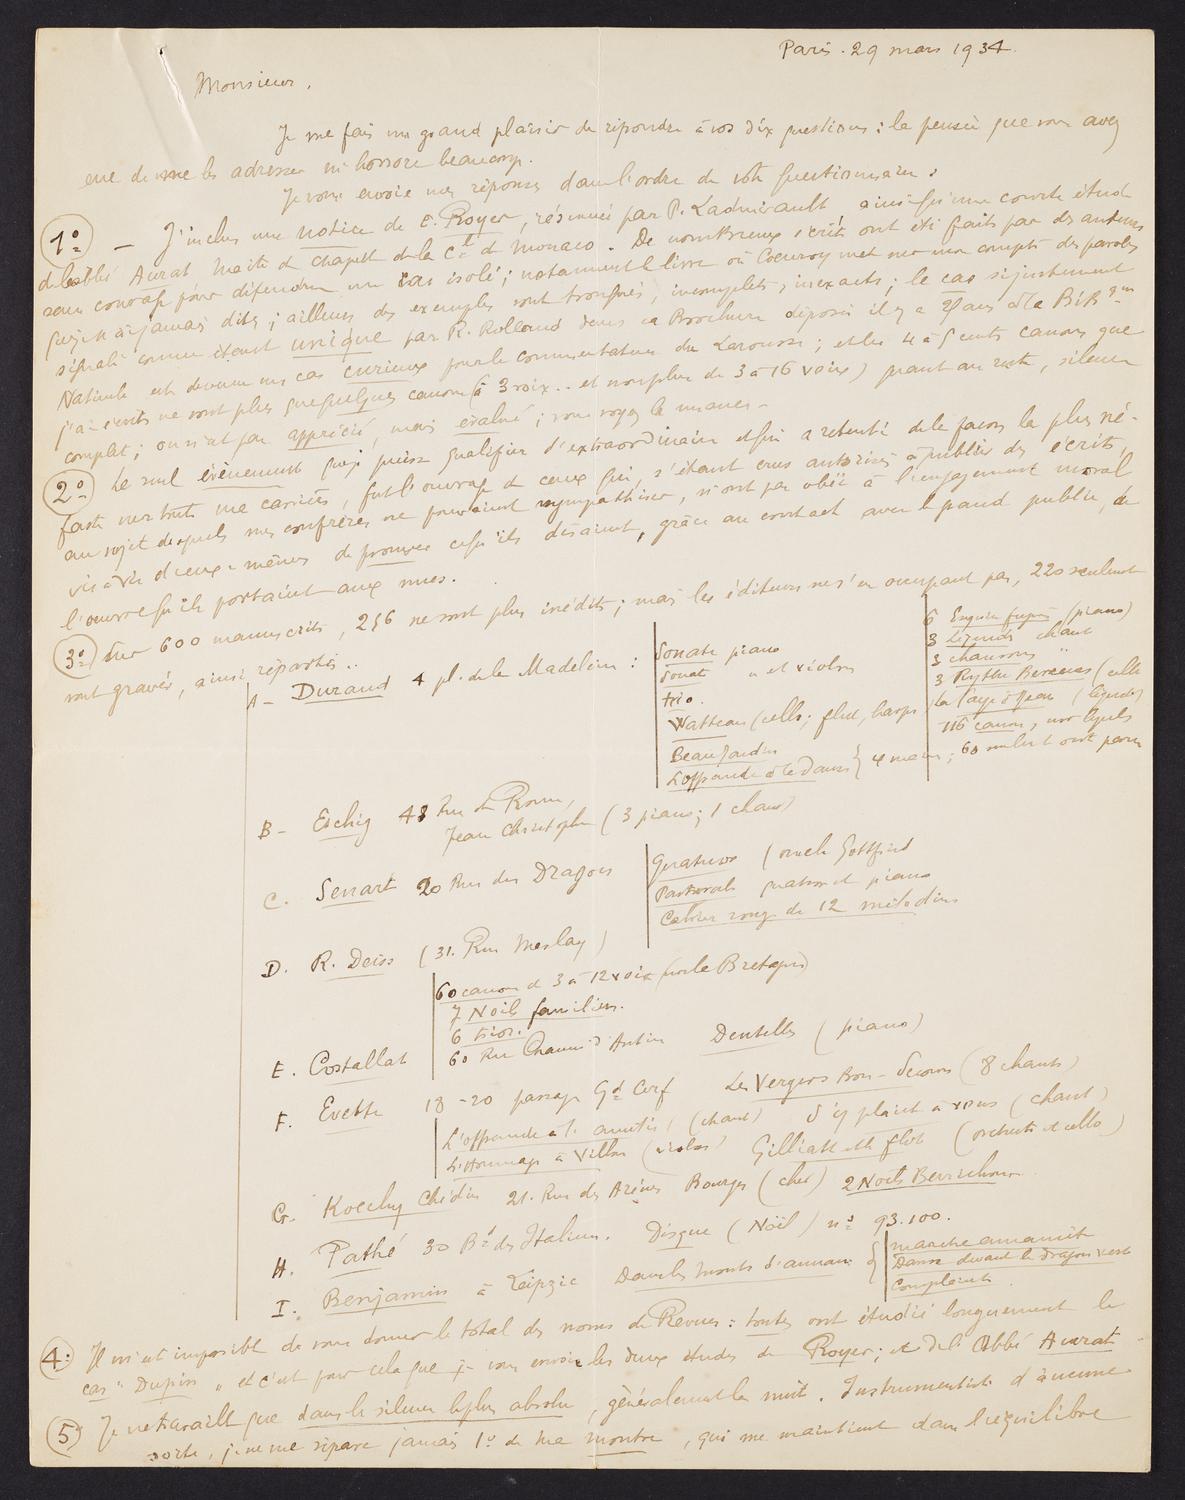 Paris. 29 mars 1934.
Monsieur,
Je me fais un grand plaisir de répondre à vos dix questions : la pensée que vous avez
eue de me les adresser m'honore beaucoup.
Je vous envoie mes réponses dans l'ordre de votre questionnaire :
1º — J'inclus une notice de E. Royer, résumée par P. Ladmirault ainsi qu'une courte étude
de l'abbé Aurat Maître de chapelle de la Cle de Monaco. De nombreux écrits ont été faits par des auteurs
sans courage pour défendre un cas isolé ; notamment le livre où Coeuroy met sur mon compte des paroles
que je n'ai jamais dites ; ailleurs des exemples sont tronqués, incomplets, inexacts ; le cas si justement
signalé comme étant unique par R. Rolland dans sa Brochure déposée il y a ans à la Bib
Natinle est devenu un cas curieux pour le commentateur du Larousse ; et les 4 à 5 cents canons que
j'ai écrits ne sont plus que quelques canons (à 3 voix .. et non plus de 3 à 16 voix) quant au reste, silence
complet ; on n'est pas apprécié, mais évalué ; vous voyez la nuance -
2º Le seul évènement que je puisse qualifier d'extraordinaire et qui a retenti de la façon la plus né-
faste sur toute ma carrière, fut l'ouvrage de ceux qui, s'étant crus autorisés à publier des écrits,
au sujet desquels mes confrères ne pouvaient sympathiser, n'ont pas obéi à l'engagement moral
vis à vis d'eux-mêmes de prouver ce qu'ils disaient, grâce au contact avec le grand public, de
l'œuvre qu'ils portaient aux nues.
3º Sur 600 manuscrits, 256 ne sont plus inédits ; mais les éditeurs ne s'en occupant pas, 220 seulement
sont gravés, ainsi répartis ..
A - Durand 4 pl. de la Madeleine :
Sonate piano
Sonate " et violon
trio.
Watteau (cello ; flûte, harpe
Beau Jardin
L'offrande à la Danse } 4 mains
6 fugues (piano)
3 Légendes chant
3 chansons "
3 Berceuses (cello
116 canons, sur lesquels
60 seulement ont paru
B - Eschig 48 Rue de Rome,
Jean Christophe (3 piano ; 1 chant)
C. Senart 20 Rue du Dragon
Quatuor (oncle Gottfried
Pastorale quatuor et piano
Cahier rouge de 12 mélodies
D. R. Deiss (31. Rue Meslay)
60 canons de 3 à 12 voix (sur la Bretagne)
7 Noëls familiers.
6 trios.
E. Costallat 60 Rue Chaussée d'Antin Dentelles (piano)
F. Evette 18-20 passage Gd Cerf Les Vergers Bon-Secours (8 chants)
L'offrande à l'amitié (chant) S'il plaist à vous (chant)
L'Hommage à Villon (violon) Gilliatt et le flot (orchestre et cello)
G. Koechly Chédin 21. Rue des Arènes Bourges (cher) 2 Noëls Berrichons
H. Pathé 30 Bd des Italiens. Disque (Noël) nº 93.100.
I. Benjamin à Leipzic Dans les monts d'annam {
marche annamite
Danse devant le dragon vert
Complainte.
4º Il m'est impossible de vous donner le total des noms de Revues : toutes ont étudié longuement le
cas "Dupin" et c'est pour cela que je vous envoie les deux études de Royer ; et de l'Abbé Aurat
5º Je ne travaille que dans le silence le plus absolu, généralement la nuit. Instrumentiste d'aucune
sorte, je ne me sépare jamais 1º de ma montre, qui me maintient dans l'équilibre